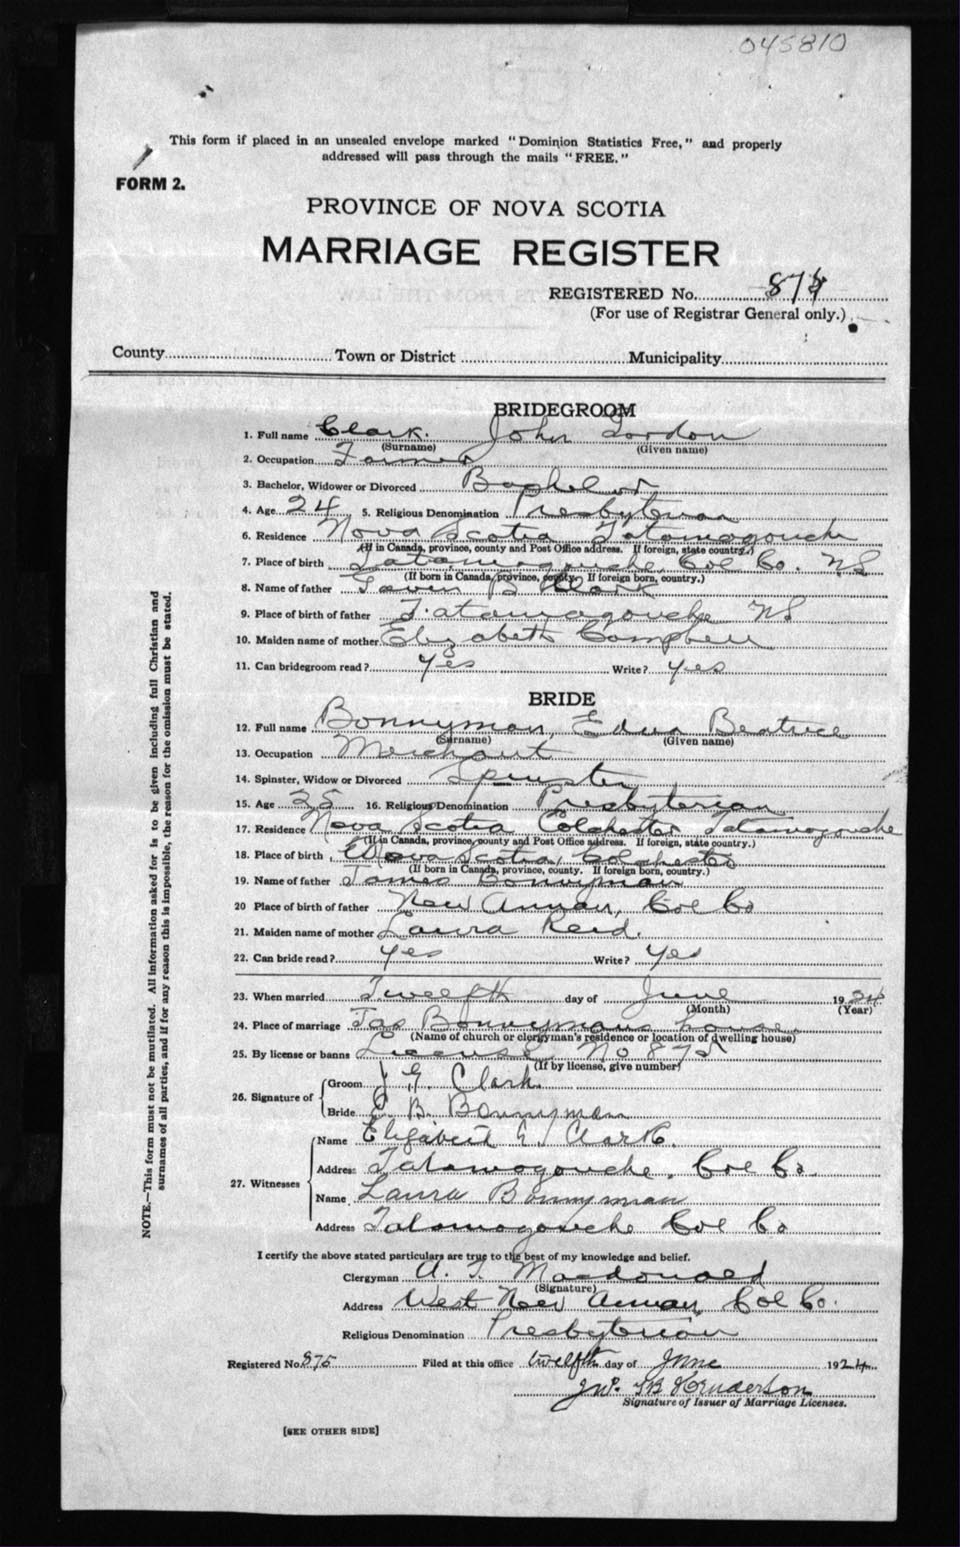 045810
This form if placed in an unsealed envelope marked "Dominion Statistics Free," and properly
addressed will pass through the mails "FREE."
FORM 2.
PROVINCE OF NOVA SCOTIA
MARRIAGE REGISTER
REGISTERED No. 875
(For use of Registrar General only.)
County Town or District Municipality
BRIDEGROOM
1. Full name Clark. John Gordon
(Surname) (Given name)
2. Occupation Farmer
3. Bachelor, Widower or Divorced Bachelor
4. Age 24 5. Religious Denomination Presbyterian
6. Residence Nova Scotia Tatamagouche
(If in Canada, province, county and Post Office address. If foreign, state country.)
7. Place of birth Tatamagouche, Col Co. NS
(If born in Canada, province, county. If foreign born, country.)
8. Name of father B Clark
9. Place of birth of father Tatamagouche NS
10. Maiden name of mother Elizabeth Campbell
11. Can bridegroom read? Yes Write? Yes
BRIDE
12. Full name Bonnyman, Edna Beatrice
(Surname) (Given name)
13. Occupation Merchant
14. Spinster, Widow or Divorced Spinster
15. Age 25 16. Religious Denomination Presbyterian
17. Residence Nova Scotia Colchester Tatamagouche
(If in Canada, province, county and Post Office address. If foreign, state country.)
18. Place of birth Nova Scotia, Colchester
(If born in Canada, province, county. If foreign born, country.)
19. Name of father James Bonnyman
20 Place of birth of father New Annan, Col Co
21. Maiden name of mother Laura Reid.
22. Can bride read? Yes Write? Yes
23. When married Twelfth day of June 1924
(Month) (Year)
24. Place of marriage Jas Bonnymans house.
(Name of church or clergyman's residence or location of dwelling house)
25. By license or banns License No 875
(If by license, give number)
26. Signature of Groom J. G. Clark.
Bride E. B. Bonnyman
27. Witnesses Name Elizabeth E. Clark.
Address Tatamagouche, Col Co.
Name Laura Bonnyman
Address Tatamagouche Col Co
I certify the above stated particulars are true to the best of my knowledge and belief.
Clergyman A. T. Macdonald
(Signature)
Address West New Annan, Col Co.
Religious Denomination Presbyterian
Registered No. 875 Filed at this office twelfth day of June 1924
Jno. Henderson
Signature of Issuer of Marriage Licenses.
[SEE OTHER SIDE]
NOTE.—This form must not be mutilated. All information asked for is to be given including full Christian and
surnames of all parties, and if for any reason this is impossible, the reason for the omission must be stated.